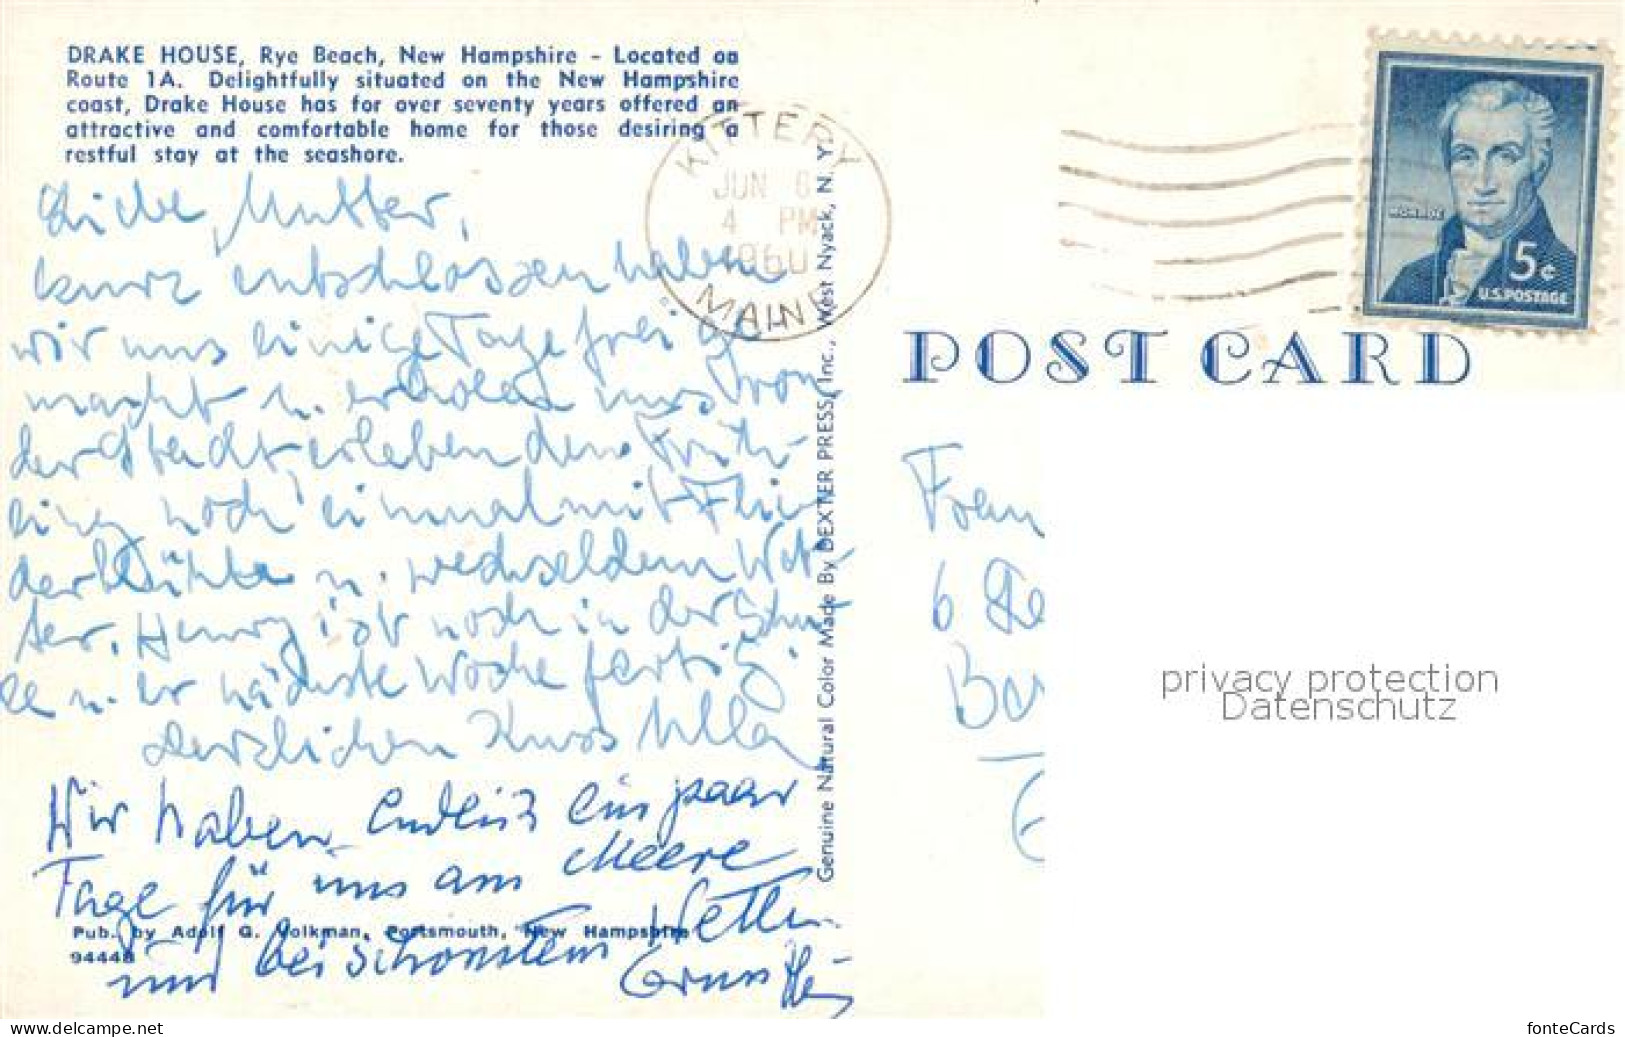 DRAKE HOUSE, Rye Beach, New Hampshire - Located on
Route 1A. Delightfully situated on the New Hampshire
coast, Drake House has for over seventy years offered an
attractive and comfortable home for those desiring a
restful stay at the seashore.
KITTERY
JUN 6
4 PM
1960
MAINE
MONROE
5¢
U.S. POSTAGE
POST CARD
Liebe Mutter,
kurz entschlossen haben
wir uns einige Tage frei ge
macht u. erholen uns von
der Stadt, erleben den Früh-
ling noch einmal mit Flie
derblüte u. wechselndem Wet-
ter. Henry ist noch in der Schu
le u. er nächste Woche fertig.
Herzlichen Kuss Ulla
Wir haben endlich ein paar
Tage für uns am Meere
und bei schönstem Wetter.
Gruss
Pub. by Adolf G. Volkman, Portsmouth, New Hampshire
94448
Genuine Natural Color Made By DEXTER PRESS, Inc., West Nyack, N. Y.
Frau
6
privacy protection
Datenschutz
www.delcampe.net
fonteCards